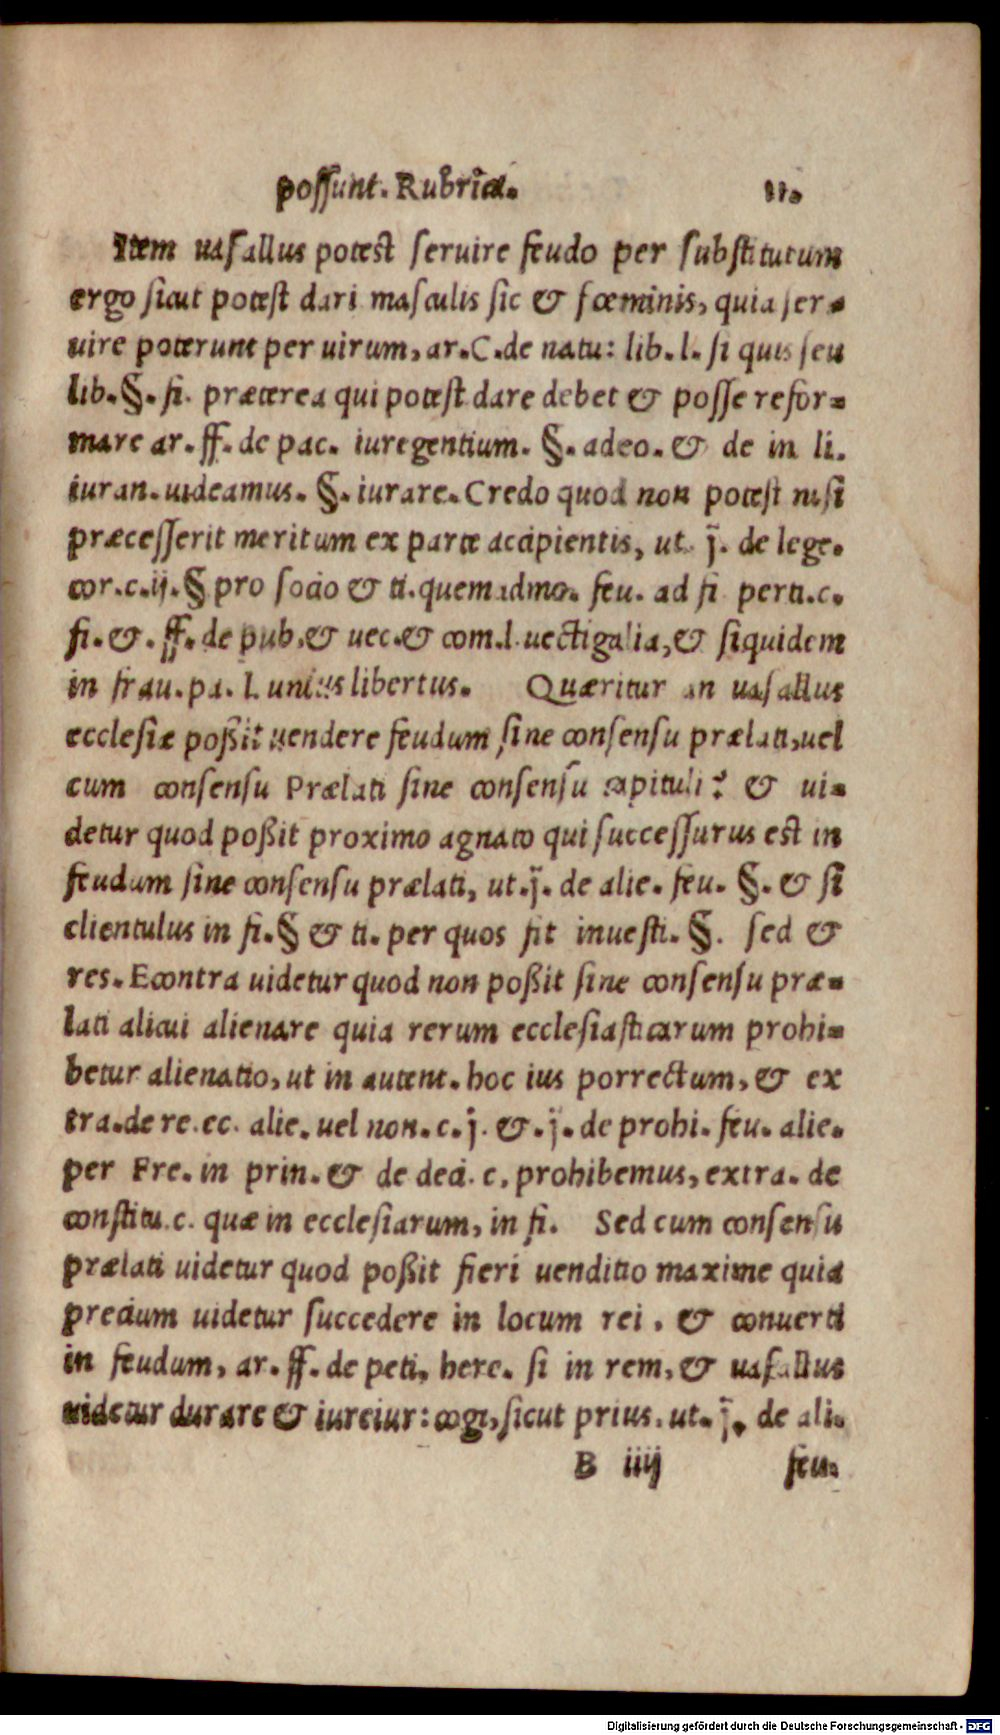 possunt. Rubrica. 11.
Item uasallus potest seruire feudo per substitutum
ergo sicut potest dari masculis sic & fœminis, quia ser-
uire poterunt per uirum, ar. C. de natu: lib. l. si quis seu
lib. §. fi. præterea qui potest dare debet & posse refor-
mare ar. ff. de pac. iuregentium. §. adeo. & de in li.
iuran. uideamus. §. iurare. Credo quod non potest nisi
præcesserit meritum ex parte accipientis, ut j. de lege.
cor. c. ij. § pro socio & ti. quemadmo. feu. ad fi perti. c.
fi. &. ff. de pub. & uec. & com. l. uectigalia, & siquidem
in frau. pa. l. unius libertus. Quæritur an uasallus
ecclesiæ poßit uendere feudum sine consensu prælati, uel
cum consensu Prælati sine consensu capituli? & ui-
detur quod poßit proximo agnato qui successurus est in
feudum sine consensu prælati, ut. j. de alie. feu. §. & si
clientulus in fi. § & ti. per quos fit inuesti. §. sed &
res. Econtra uidetur quod non poßit sine consensu præ-
lati alicui alienare quia rerum ecclesiasticarum prohi-
betur alienatio, ut in autent. hoc ius porrectum, & ex
tra. de re. ec. alie. uel non. c. j. &. j. de prohi. feu. alie.
per Fre. in prin. & de deci. c. prohibemus, extra. de
constitu. c. quæ in ecclesiarum, in fi. Sed cum consensu
prælati uidetur quod poßit fieri uenditio maxime quia
precium uidetur succedere in locum rei. & conuerti
in feudum, ar. ff. de peti. here. si in rem, & uasallus
uidetur durare & iureiur: cogi, sicut prius. ut. j. de ali.
B iiij feu.
Digitalisierung gefördert durch die Deutsche Forschungsgemeinschaft - DFG